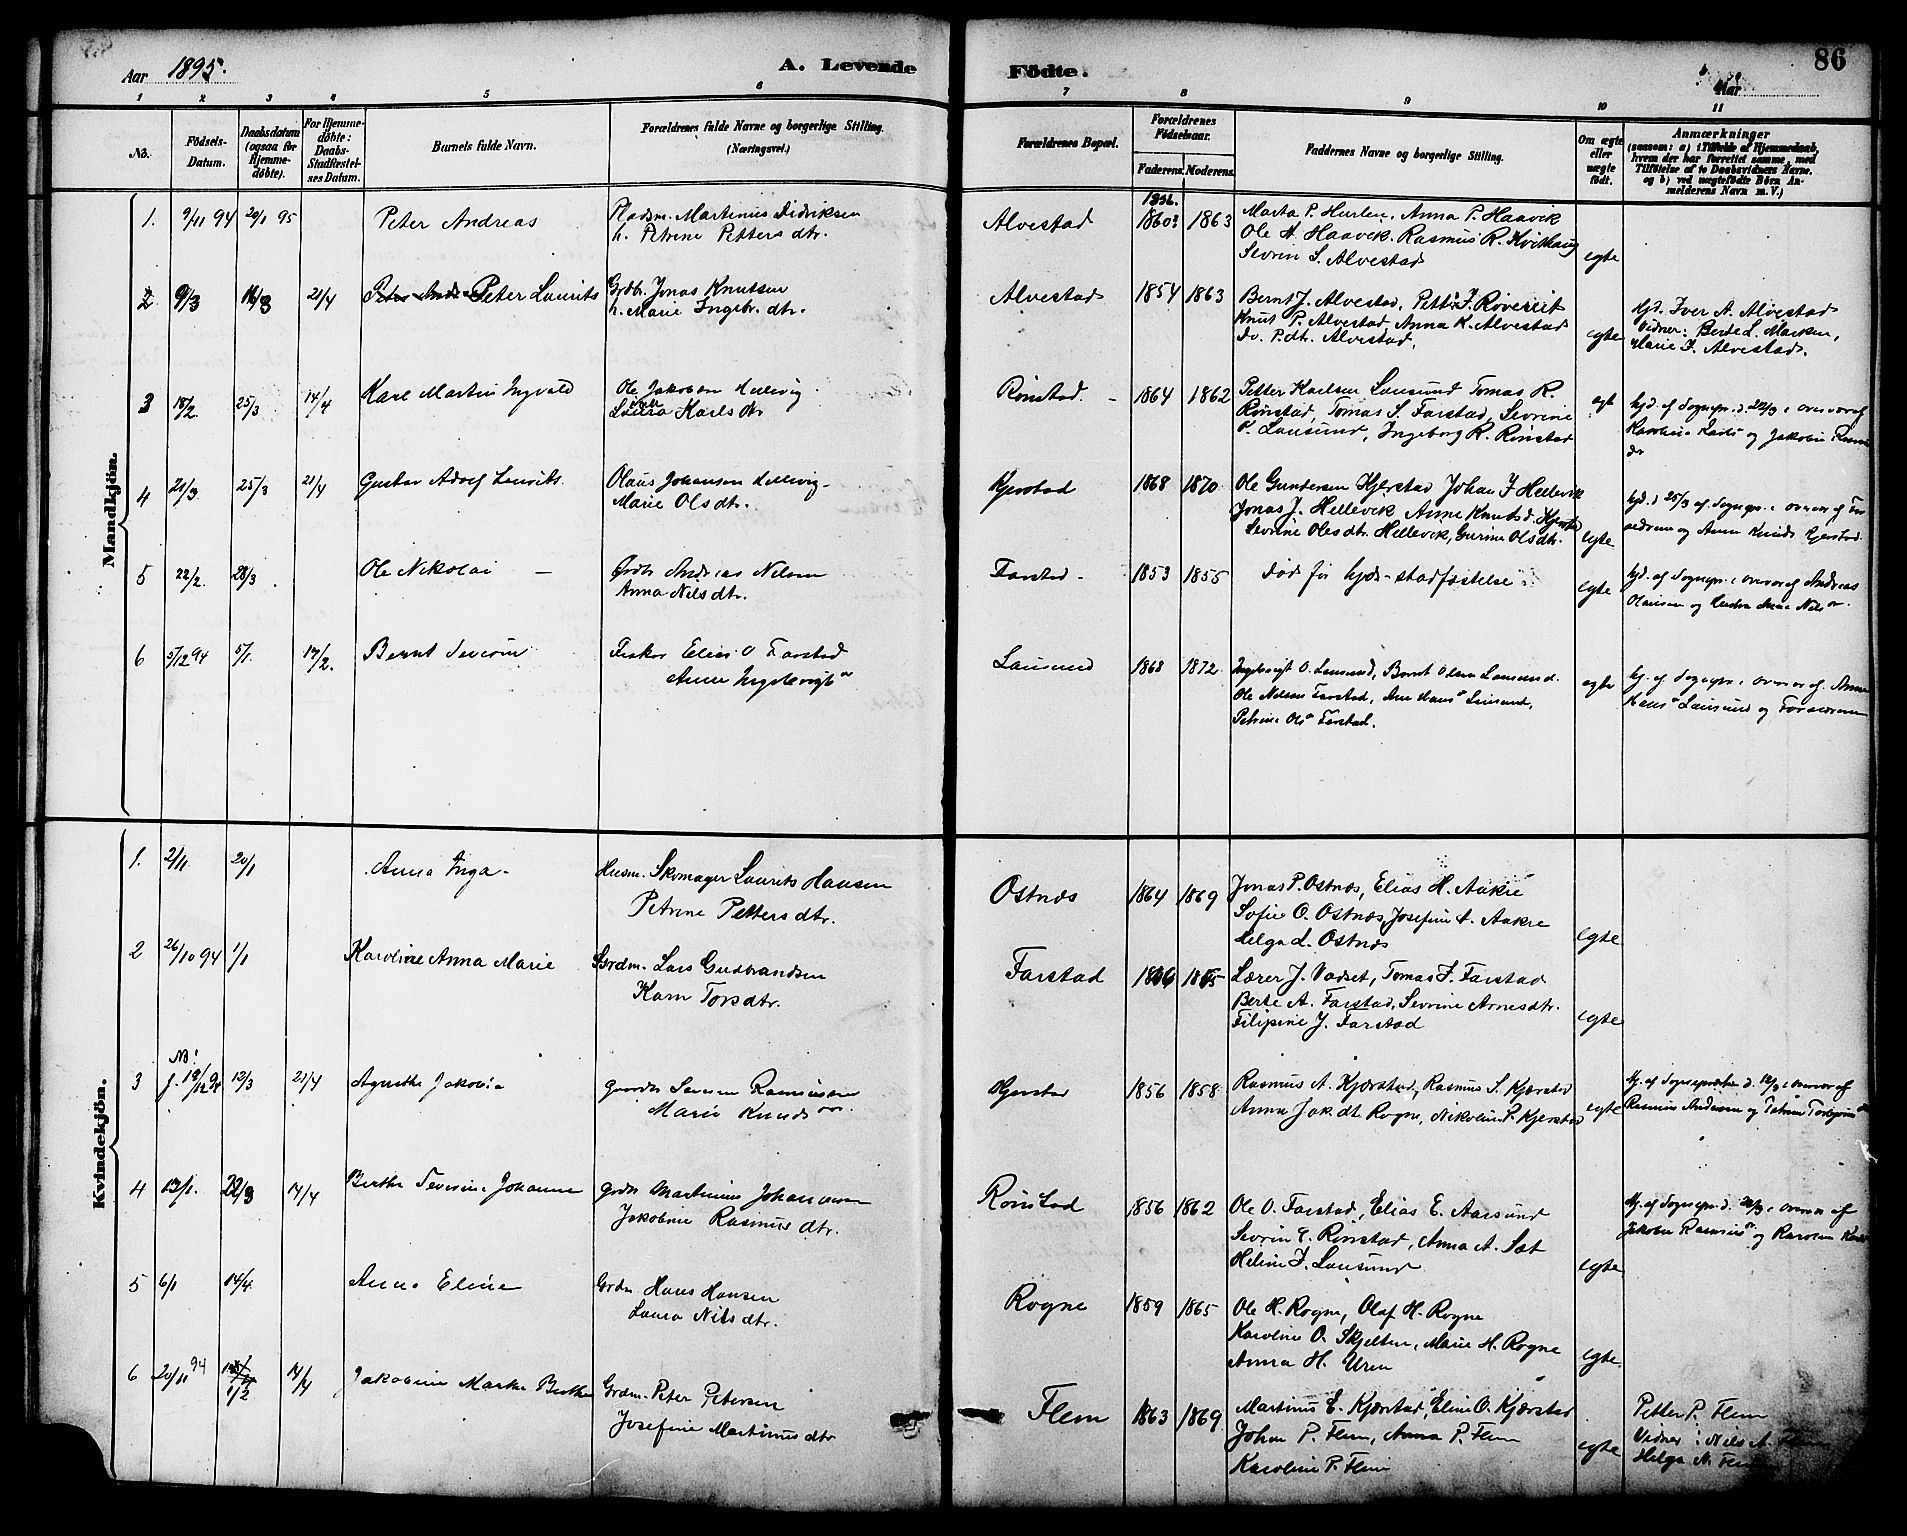 Aar 1895.
A. Levende Födte.
Aar
86
1 2 3 4 5 6 7 8 9 10 11
No.
Födsels-Datum.
Daabsdatum (ogsaa for Hjemme-döbte).
For Hjemme-döbte: Daabs-Stadfæstel-ses Datum.
Barnets fulde Navn.
Forældrenes fulde Navne og borgerlige Stilling. (Næringsvei.)
Forældrenes Bopæl.
Forældrenes Födselsaar.
Faderens. Moderens.
Faddernes Navne og borgerlige Stilling.
Om ægte eller uægte født.
Anmærkninger
(saasom: a) i Tilfælde af Hjemmedaab,
hvem der har forrettet samme, med
Tilföielse af to Daabsvidners Navne.
og b) ved uægtefödte Börn An-
melderens Navn m. V.)
Mandkjön.
1. 9/11 94 20/1 95 Peter Andreas
Pladsm. Martinus Didriksen
h. Petrine Petters dtr.
Alvestad 1860? 1863
Marta P. Hurlen, Anna P. Haavik
Ole H. Haavik, Rasmus R. Kvithaug
Sevrin S. Alvestad
egte
2 9/3 21/4 Peter Laurits
Grdbr. Jonas Knutsen
h. Marie Ingebr. dtr.
Alvestad 1854 1863
Bernt J. Alvestad, Petter
Knut P. Alvestad, Anna K. Alvestad
P.dtr. Alvestad.
egte
Hjd. Iver A. Alvestad
Vidner: Berte L. Marken,
Marie J. Alvestad.
3 18/2 25/3 14/4 Karl Martin Ingvald
Ole Jakobsen Hellevig
Karls dtr
Rönstad. 1864 1862
Petter Karlsen Lausund Tomas R.
Rönstad, Tomas S. Farstad, Sevrine
P. Lausund, Ingeborg R. Rönstad
egt
hjd. af Sognepr. d. 22/3 i overvær af
Karls og Jakobine Rasm
4 21/3 25/3 21/4 Gustav Adolf Laurits.
Olaus Johansen Hellevig
Marie Olsdtr.
Kjerstad 1868 1870
Ole Gundersen Kjerstad Johan J Hellevik
Jonas J. Hellevik Anne Knutsd. Kjerstad
Sevrine Olesdtr. Hellevik, Gurine Olsdtr.
egte
hjd. d 25/3 af Sognepr. i overvær af For
ældrene og Anne Knuds Kjerstad.
5 22/2 28/3 Ole Nikolai
Grdbr Andreas Nilsen
Anna Nils dtr.
Farstad 1853 1855
Död før hjds-stadfæstelse
egte
hjd. af Sognepr. i overvær af Andreas
og Anne Nils
6 5/12 94 5/1 17/2. Bernt Severin
Fisker Elias O Farstad
Anne Ingebrigt
Lausund 1868 1872
Ingebrigt O. Lausund, Bernt Olsen Lausund.
Ole Nilsen Farstad, Ane Hans Lausund,
Petrine Ols Farstad.
egte
hj. af Sognepr. i overvær af Anne
Hans Lausund og Forældrene
Kvindekjön.
1. 2/11 20/1 Anna Inga
Husm. Skomager Laurits Hansen
Petrine Petters dtr.
Ostnæs 1864 1869
Jonas P. Ostnæs, Elias H. Aakre
Sofie O. Ostnæs, Josefine A. Aakre
Helga L. Ostnæs
egte
2 26/10 94 1/1 Karoline Anna Marie
Grdm. Lars Gudbrandsen
Karn Torsdtr.
Farstad
Lærer J. Vadset, Tomas J. Farstad
Berte A. Farstad, Sevrine Arnesdtr.
Filipine J. Farstad
egte
3 NB! f. 19/12 94 12/3 21/4 Agnethe Jakobia
Gaardbr Rasmussen
Marie Knuds
Kjerstad 1856 1858
Rasmus A. Kjærstad, Rasmus S. Kjærstad
Anna Jak.dt. Rogne, Nikoline P. Kjerstad
egte
Hj. af Sognepræsten d. 12/3 i overvær af
Rasmus Andersen og Petrine
4 13/1. 22/3 14/4 Berthe Severine Johanne
Grdbr Martinus Johannesen
Jakobine Rasmus dtr.
Rönstad 1856 1862
Ole O. Farstad, Elias E. Aarsund
Sevrin E. Rönstad, Anna A. Sæt
Heline J. Lausund
egte
Hj. af Sognepr. d. 22/3 i overvær af
Jakobine Rasmus og Karoline Karls
5 6/1 14/4. Anna Eline
Grdm Hans Hansen
Laura Nils dtr.
Rogne 1859 1865
Ole H. Rogne, Olaf H. Rogne
Karoline O. Skjelten, Marie H. Rogne
Anna H. Uren
egte
6 20/11 94 1/2 14/4 Jakobine Marthe Berthe
Grdm. Peter Petersen
Josefine Martinus dtr
Flem 1863 1869
Martinus E. Kjærstad, Eline O. Kjærstad
Johan P. Flem, Anna P. Flem
Karoline P. Flem
egte
Petter P. Flem
Vidner: Nils A. Flem
Helga N. Flem